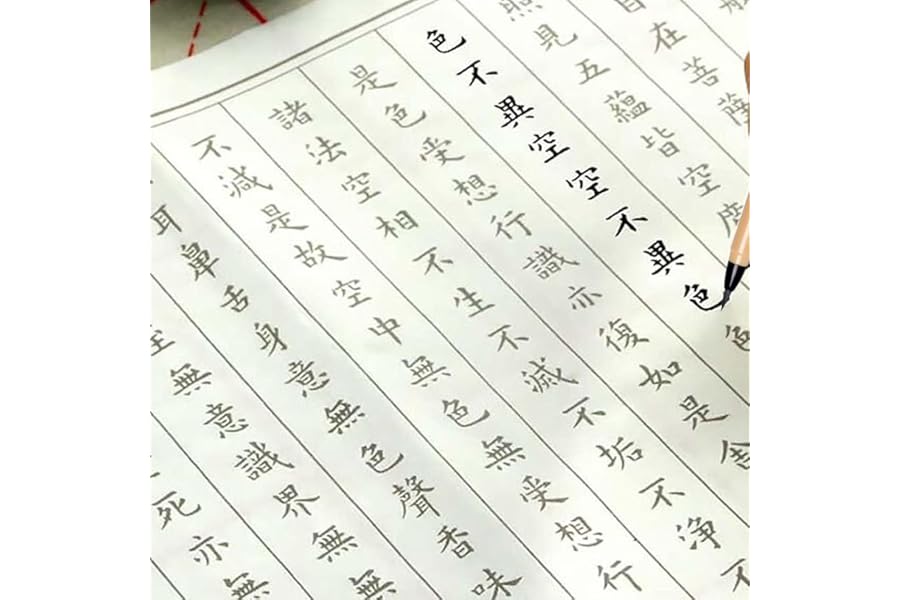 自在菩薩
照見五蘊皆空度
色不異空空不異色色
是色受想行識亦復如是舍
諸法空相不生不滅不垢不淨不
不減是故空中無色無受想行
耳鼻舌身意無色聲香味
至無意識界無無
死亦無